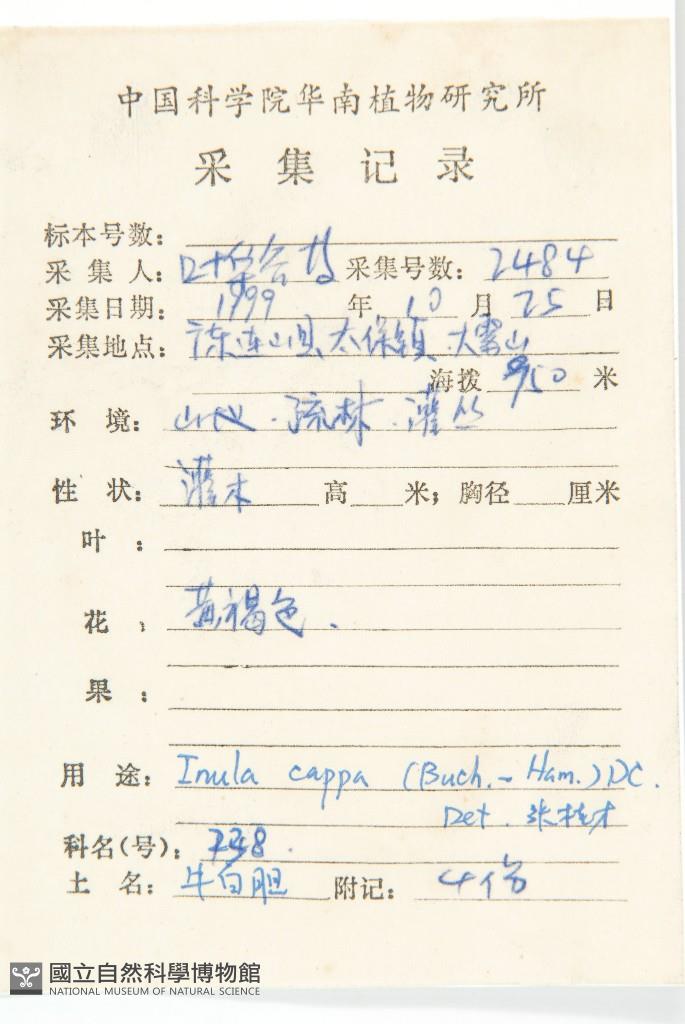 中国科学院华南植物研究所
采集记录
标本号数:
采集人: 叶华谷 采集号数: 2484
采集日期: 1999 年 10 月 25 日
采集地点: 连山县太保镇大雾山
海拨 950 米
环境: 山地·疏林·灌丛
性状: 灌木 高 米; 胸径 厘米
叶:
花: 黄褐色.
果:
用途: Inula cappa (Buch.-Ham.) DC.
Det. 张桂才
科名(号): 238.
土名: 牛白胆 附记: 4份
國立自然科學博物館
NATIONAL MUSEUM OF NATURAL SCIENCE